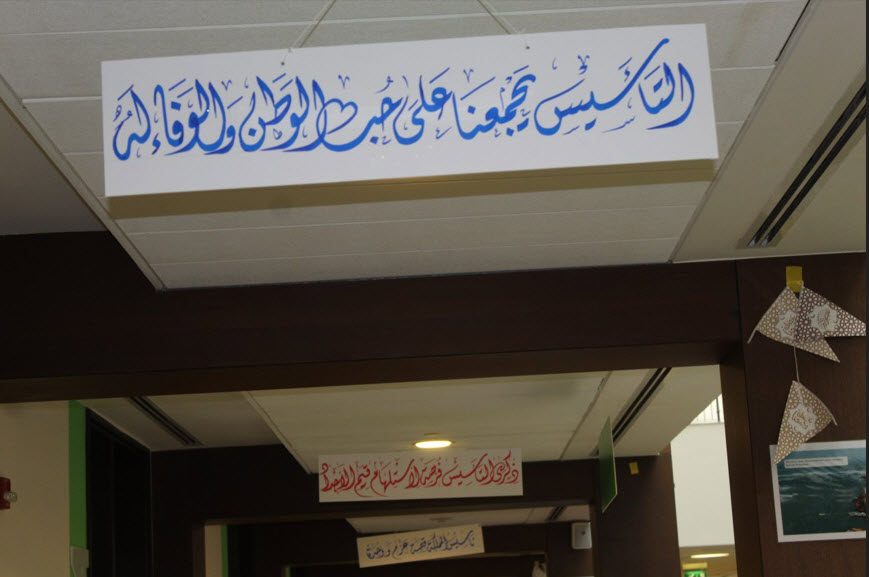 التَّأسِيس يَجمَعنَا عَلَى حُب الوَطَن وَالوَفَاءِ لَهُ
ذكرى التأسيس فرصة لاستلهام قيم الأجداد
تأسيس المملكة قصة عزم وإرادة